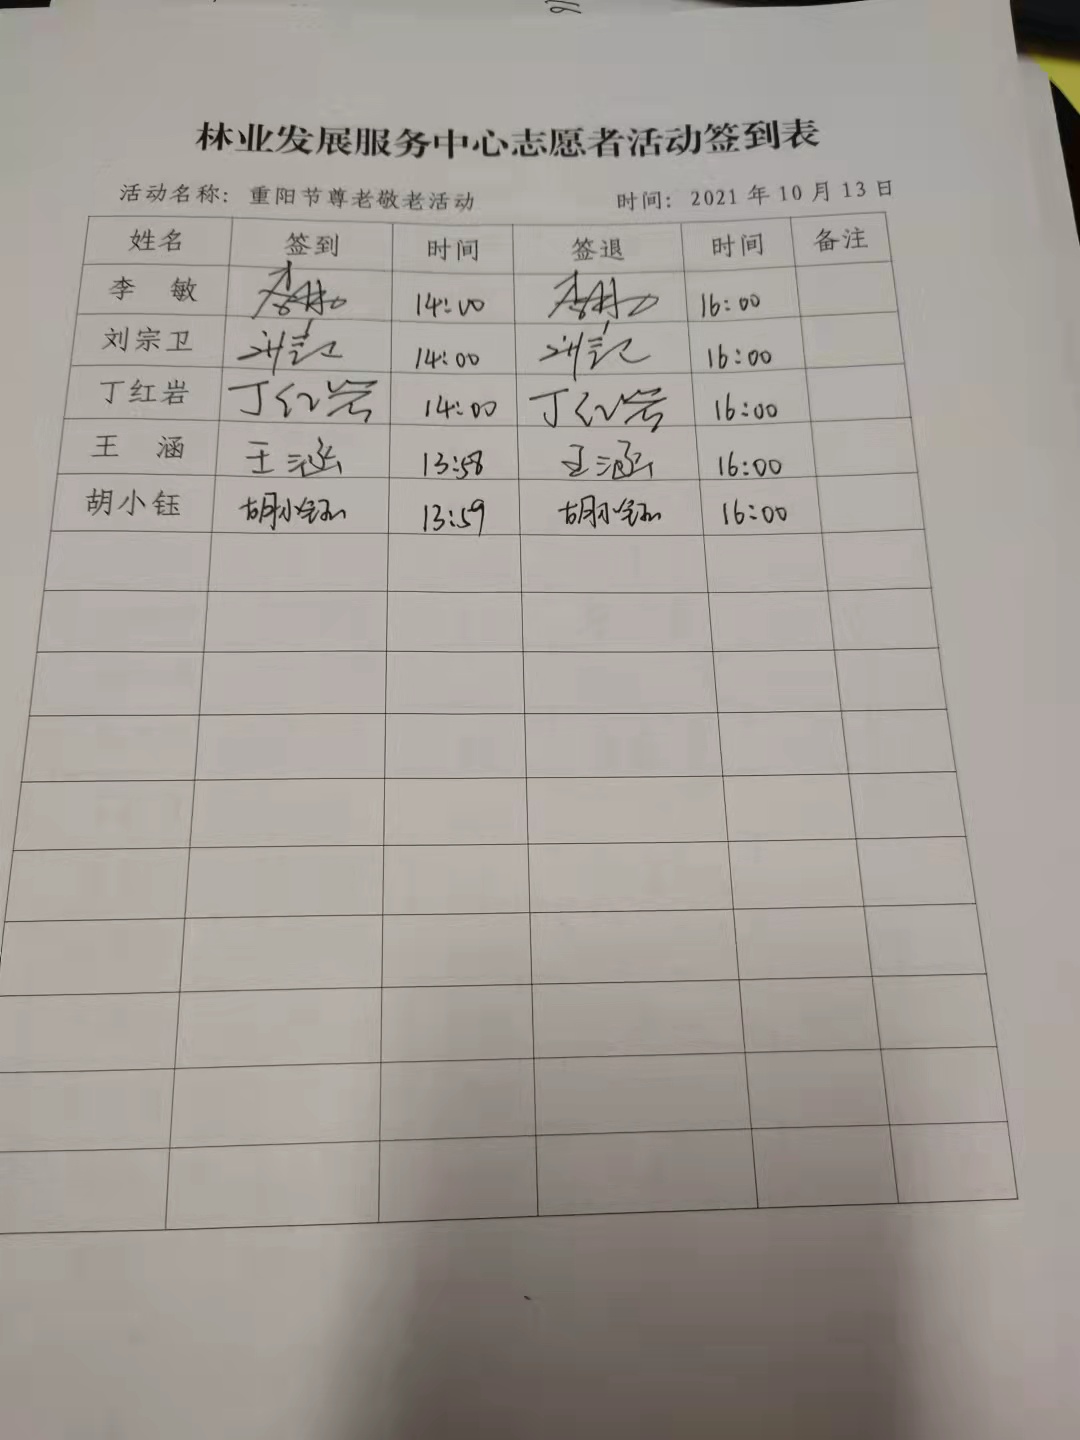 林业发展服务中心志愿者活动签到表
活动名称：重阳节尊老敬老活动 时间：2021 年 10 月 13 日
姓名 签到 时间 签退 时间 备注
李 敏 李敏 14:00 李敏 16:00
刘宗卫 14:00 16:00
丁红岩 丁红岩 14:00 丁红岩 16:00
王 涵 王涵 13:58 王涵 16:00
胡小钰 胡小钰 13:59 胡小钰 16:00